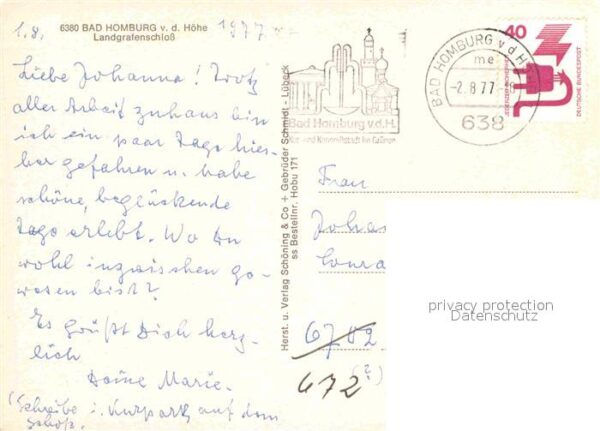 1.8. 1977
6380 BAD HOMBURG v. d. Höhe
Landgrafenschloß
Liebe Johanna! Trotz
aller Arbeit zuhaus bin
ich ein paar Tage hier-
her gefahren u. habe
schöne, beglückende
Tage erlebt. Wo Du
wohl inzwischen ge-
wesen bist?
Es grüßt Dich herz-
lich
Deine Marie.
(Schreibe i. Kurpark auf dem
Schoß.
Herst. u. Verlag Schöning & Co + Gebrüder Schmidt - Lübeck
ss Bestellnr. Hobu 171
Bad Homburg v.d.H.
BAD HOMBURG v d H
me
-2.8.77
638
40
DEUTSCHE BUNDESPOST
Frau
Johan
Conra
6702
672 (?)
privacy protection
Datenschutz